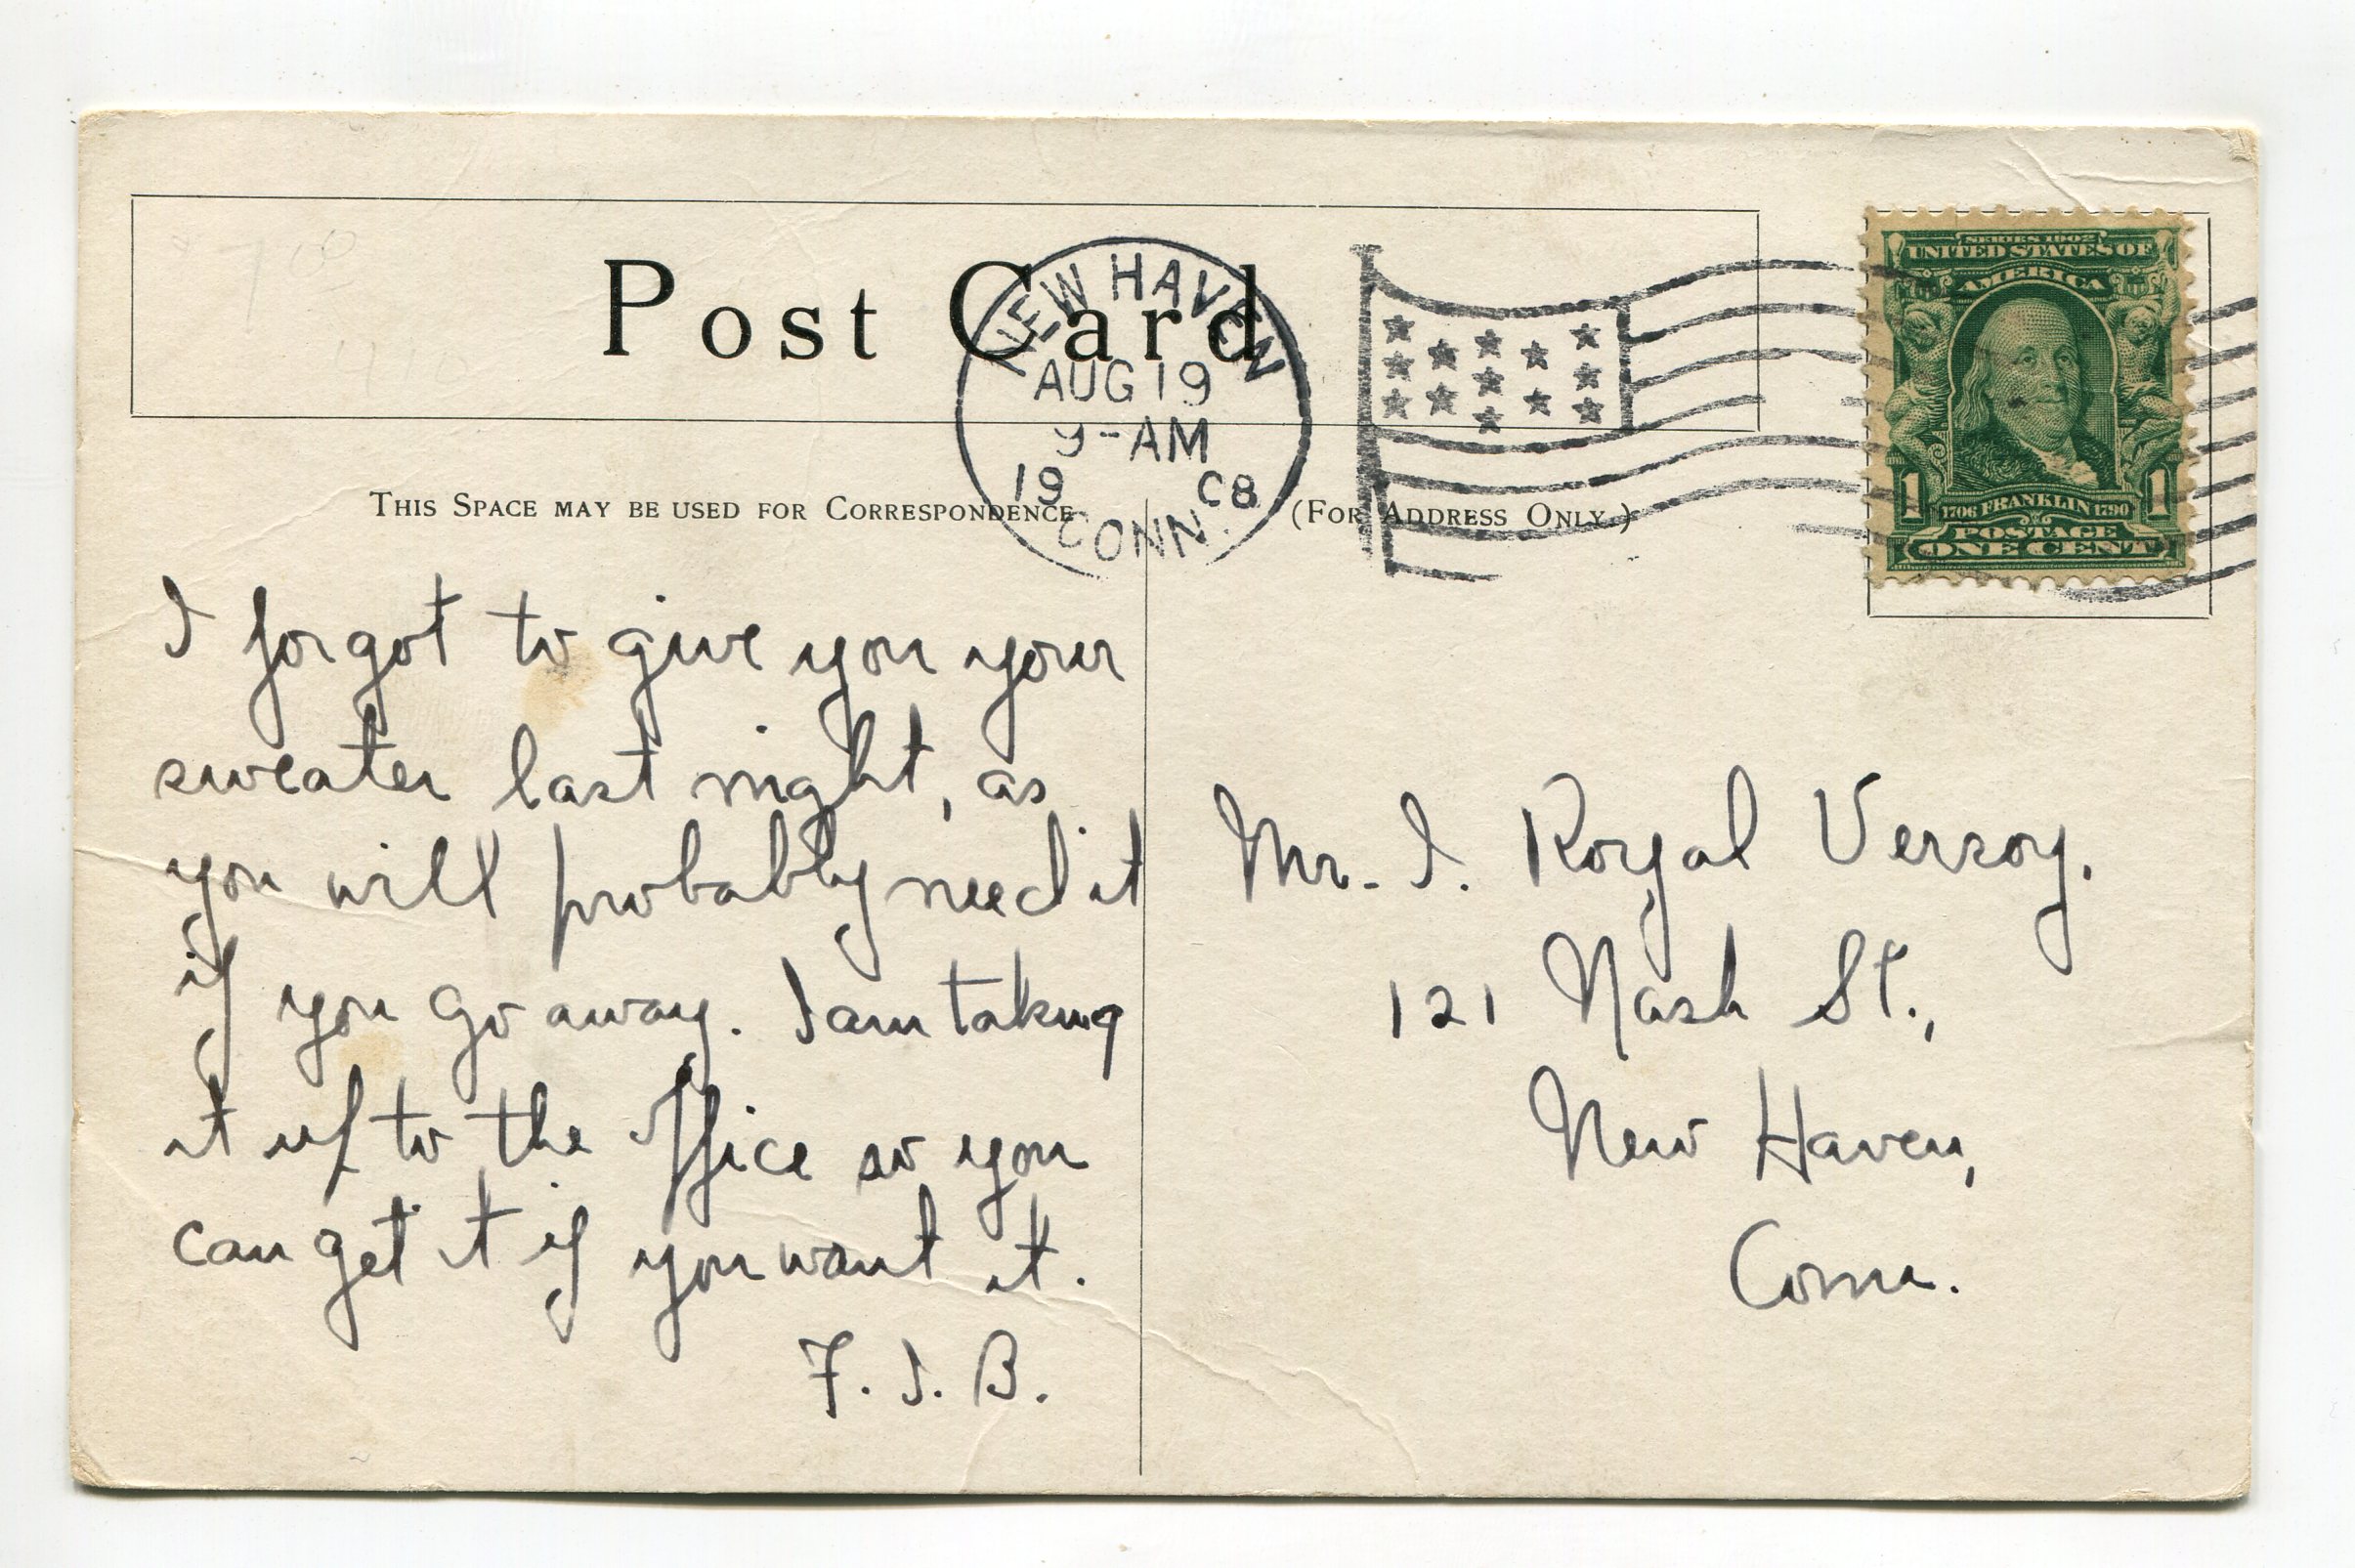 Post Card
NEW HAVEN
AUG 19
9-AM
19 08
CONN.
SERIES 1902
UNITED STATES OF
AMERICA
1 1
1706 FRANKLIN 1790
POSTAGE
ONE CENT
THIS SPACE MAY BE USED FOR CORRESPONDENCE
I forgot to give you your
sweater last night, as
you will probably need it
if you go away. I am taking
it up to the office so you
can get it if you want it.
F. I. B.
(FOR ADDRESS ONLY.)
Mr. I. Royal
121 Nash St.,
New Haven,
Conn.